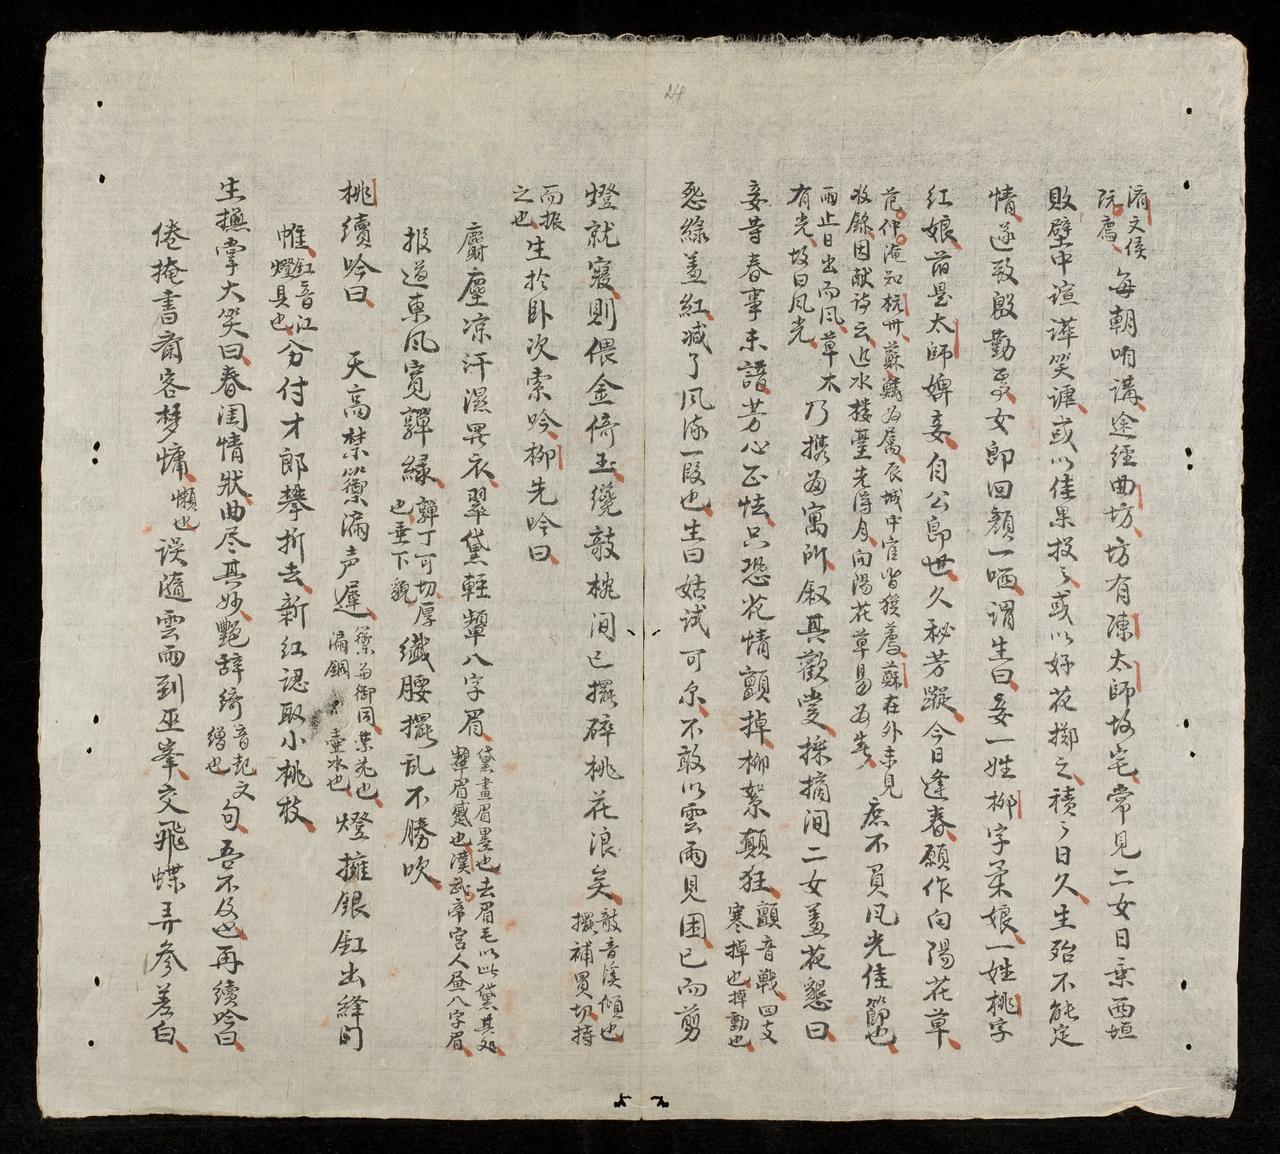 濟文侯
阮廌 每朝咱講途經曲坊坊有陳太師故宅常見二女日乗西垣
敗壁中諠譁笑謔或以佳果投之或以好花擲之積々日久生殆不能定
情遂致殷勤焉女郎回顏一哂謂生曰妾一姓柳字柔娘一姓桃字
紅娘前是太師婢妾自公即世久秘芳蹤今日逢春願作向陽花草
范仲淹知杭州蘇鱗為属辰城中官皆獲薦蘇在外未見
收錄因献詩云近水楼臺先得月向陽花草易為春 庶不負风光佳節也
雨止日出而风草木
有光故曰风光 乃携為寓所叙其歡愛採摘间二女羞花懇曰
妾等春事未諳芳心正怯只恐花情顫掉柳絮顛狂 顫音戦四支
寒掉也掉動也
愁綠羞紅減了风流一段也生曰姑試可尔不敢以雲雨見困已而剪
燈就寢則偎金倚玉纔敲枕间已擺碎桃花浪矣 敲音溪傾也
擺補買切持
而振
之也 生於卧次索吟柳先吟曰
麝塵凉汗濕羅衣翠黛輕顰八字眉 黛畫眉墨也去眉毛以此黛其処
顰眉蹙也漢武帝宮人昼八字眉
报道東风寬嚲緑 嚲丁可切厚
也垂下貌 纖腰擺乱不勝吹
桃續吟曰 天高禁籞漏声遲 籞与御同禁苑也
漏銅壷水也 燈擁銀釭出絳
帷 釭音江
燈具也 分付才郎攀折去新紅認取小桃枝
生撫掌大笑曰春闺情狀曲尽其妙艷辞綺 音起文
繒也 句吾不及也再續吟曰
倦掩書齋客梦慵 懶也 误隨雲雨到巫峯交飛蝶弄參差白